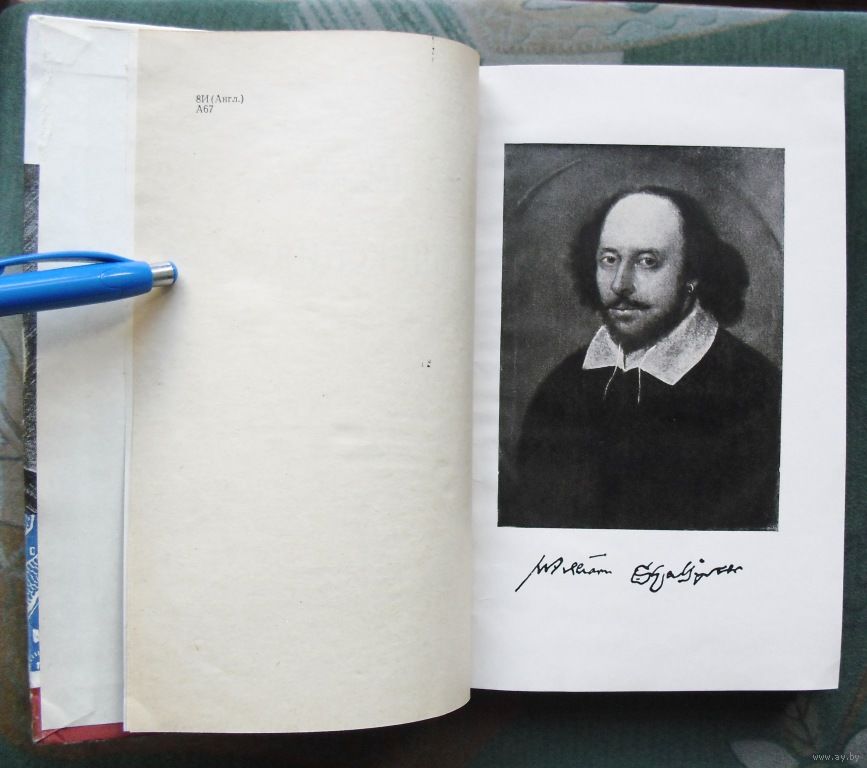 8И(Англ.)
А67
William Shakspeare
www.ay.by